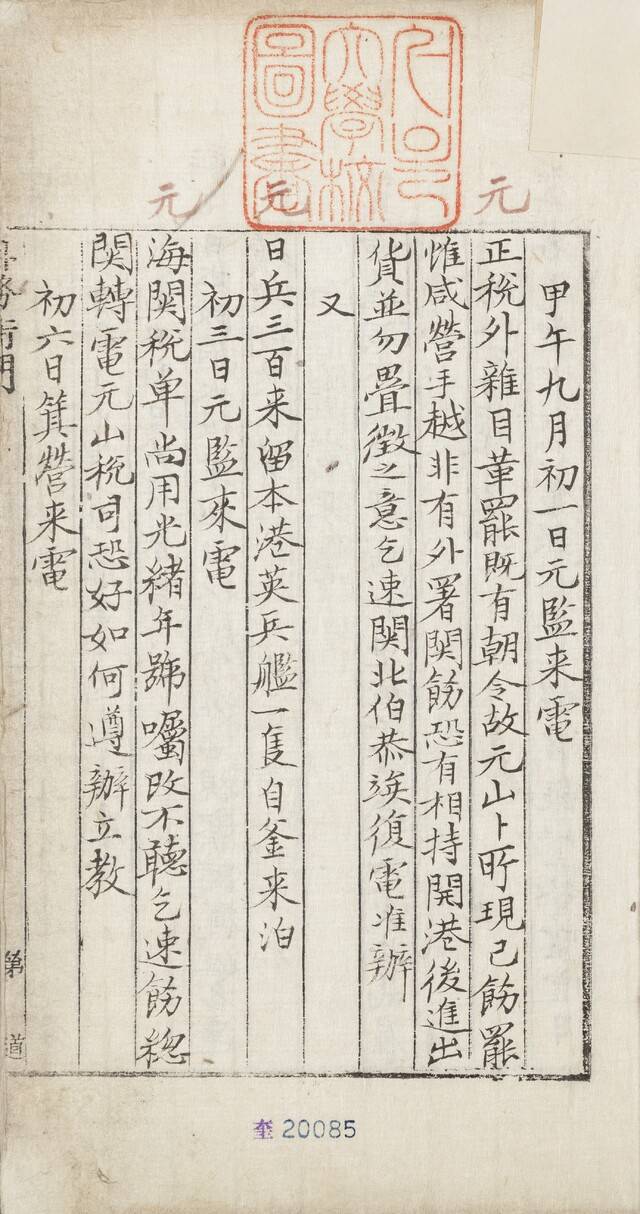 元 元 元
甲午九月初一日元監来電
正稅外雜目革罷既有朝令故元山卜所現已飭罷
惟咸營手越非有外署関飭恐有相持開港後進出
貨並勿疊徵之意乞速関北伯恭竢復電准辦
又
日兵三百来留本港英兵艦一隻自釜来泊
初三日元監來電
海関稅单尚用光緖年號囑改不聽乞速飭総
関轉電元山稅司恐好如何遵辦立教
初六日箕營来電
務衙門
第 道
奎 20085